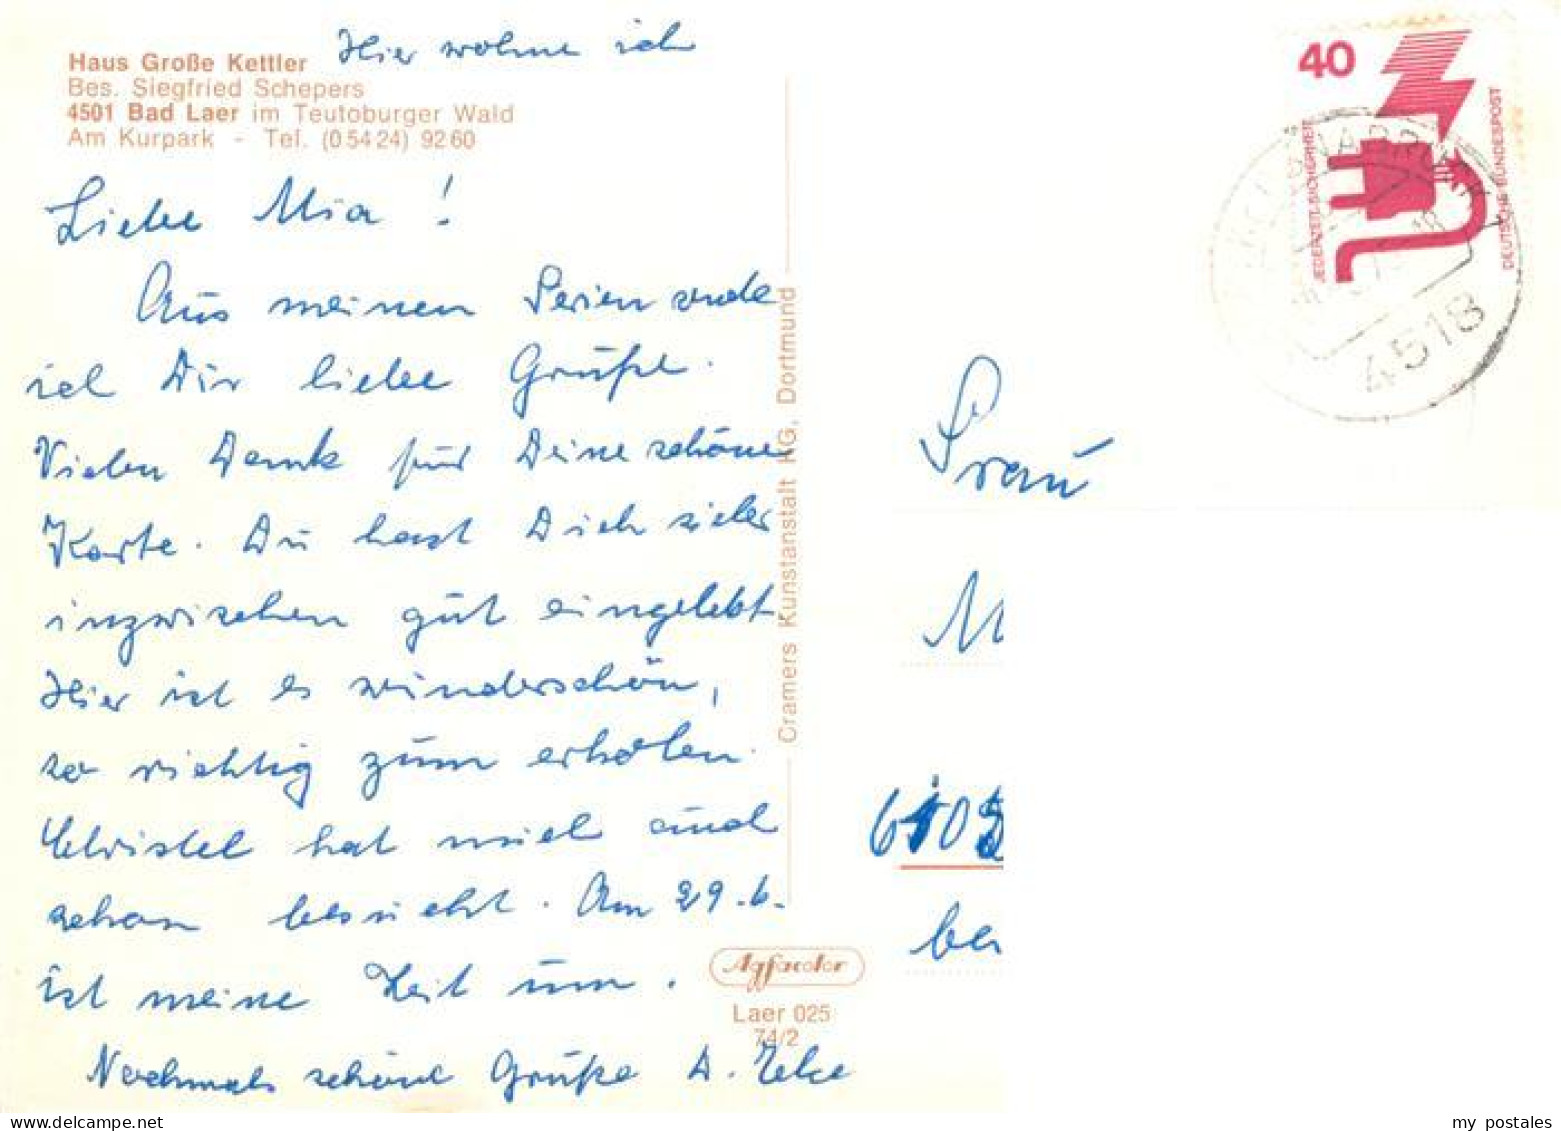 Hier wohne ich
Haus Große Kettler
Bes. Siegfried Schepers
4501 Bad Laer im Teutoburger Wald
Am Kurpark - Tel. (0 54 24) 92 60
Liebe Mia!
Aus meinen Ferien sende
ich Dir liebe Grüße.
Vielen Dank für Deine schöne
Karte. Du hast Dich sicher
inzwischen gut eingelebt
Hier ist es wunderschön,
so richtig zum erholen.
Christel hat mich auch
schon besucht. Am 29.6.
ist meine Zeit um.
Nochmals schöne Grüße D.
Cramers Kunstanstalt KG, Dortmund
Agfacolor
Laer 025
74/2
40
JEDERZEIT SICHERHEIT
DEUTSCHE BUNDESPOST
4518
Frau
M
be
my postales